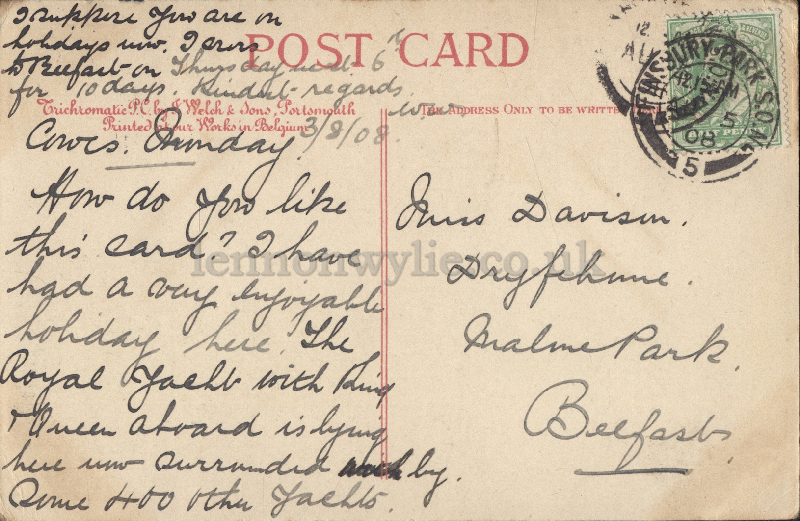 I suppose you are on
holidays now. I cross
to Belfast on Thursday next 6th
for 10 days. Kindest regards.
POST CARD
Trichromatic P.C. by J. Welch & Sons, Portsmouth
Printed at our Works in Belgium
THE ADDRESS ONLY TO BE WRITTEN
Cowes. Sunday 3/8/08.
How do you like
this card? I have
had a very enjoyable
holiday here. The
Royal Yacht with King
& Queen aboard is lying
here now surrounded by.
some 400 other Yachts.
Miss Davison.
Dryfeholme.
Malone Park.
Belfast
FINSBURY PARK S.O. N.
5
08
35
lennonwylie.co.uk